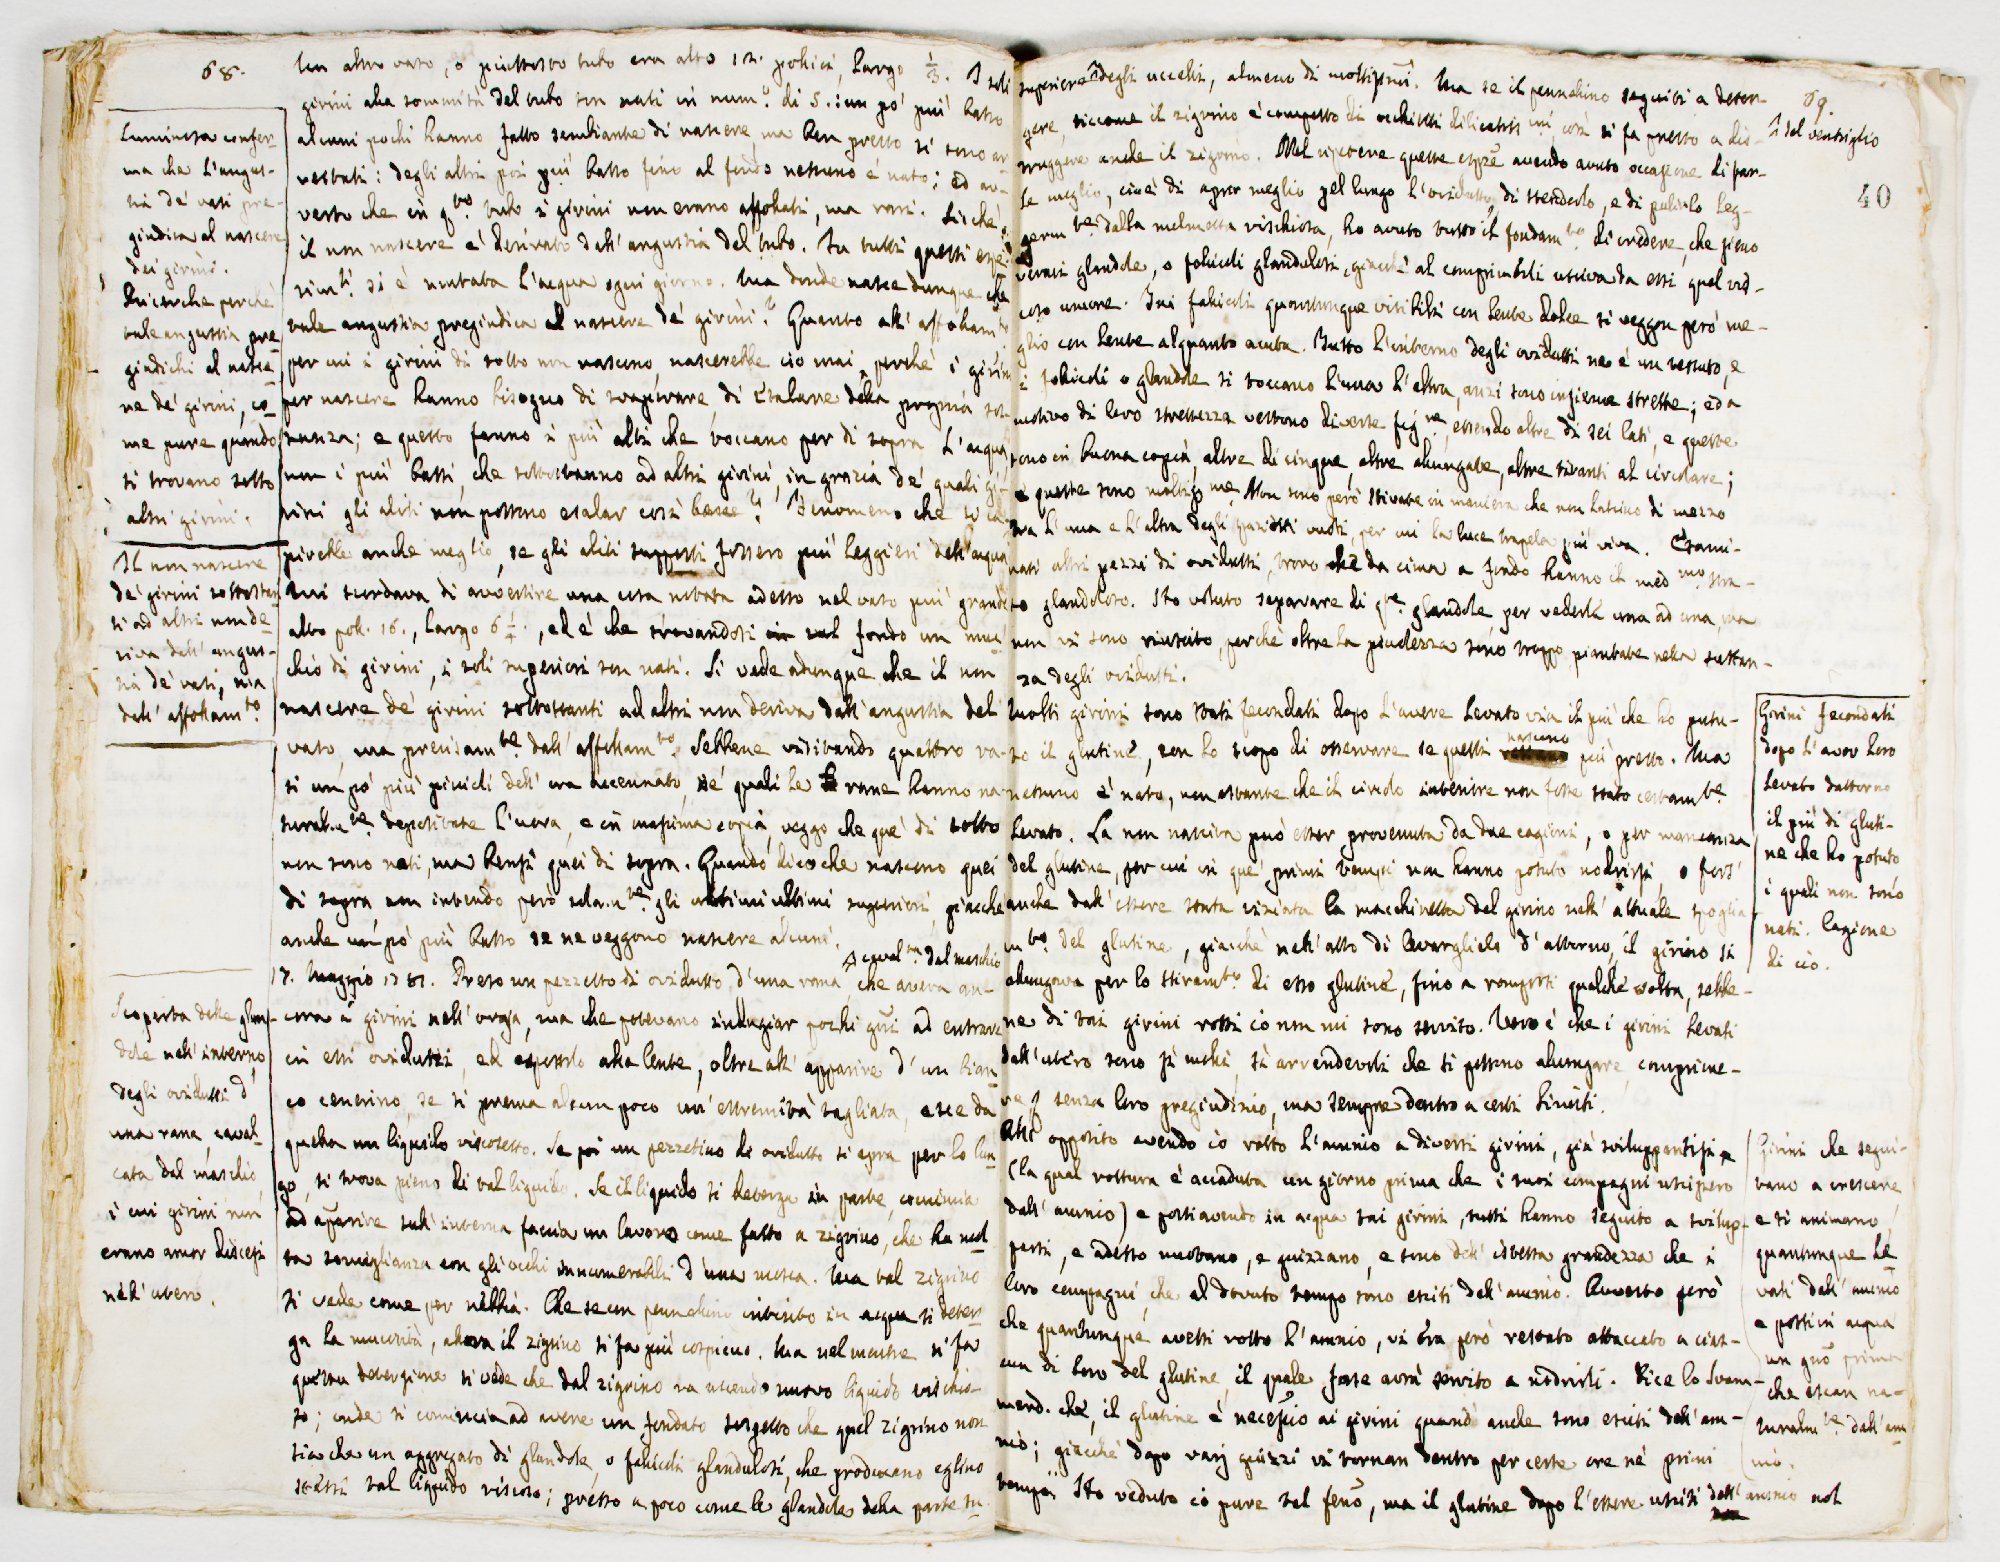 68.
Un altro vaso, o piuttosto tubo era alto 12. pollici, largo 1/3. I soli
girini alla sommità del tubo son nati in num.º di 5.: un po' più basso
alcuni pochi hanno fatto sembiante di nascere, ma ben presto si sono ar-
restati: degli altri poi più basso fino al fondo nessuno è nato; ed av-
verto che in q.to tubo i girini non erano affollati, ma rari. Sicchè
il non nascere è derivato dall'angustia del tubo. In tutti questi espe-
rim.ti si è mutata l'acqua ogni giorno. Ma donde nasce dunque che
tale angustia pregiudica al nascere de' girini? Quanto all'affollam.to
per cui i girini di sotto non nascono, nascerebbe ciò mai, perchè i girini
per nascere hanno bisogno di svaporare, di esalare della propria sos-
tanza; e questo fanno i più alti che toccano per di sopra l'acqua,
non i più bassi, che sottostanno ad altri girini, in grazia de' quali gi-
rini gli aliti non possono esalar così bene? Fenomeno che si ca-
pirebbe anche meglio, se gli aliti supposti fossero più leggieri dell'acqua
Qui scordava di avvertire una cosa notata adesso nel vaso più grande
alto pol. 16., largo 6 1/2., ed è che trovandosi in sul fondo un muc-
chio di girini, i soli superiori son nati. Si vede adunque che il non
nascere de' girini sottostanti ad altri non deriva dall'angustia del
vaso, ma precisam.te dall'affollam.to. Sebbene visitando quattro va-
si un po' più piccioli dell'ora accennato, ne' quali le rane hanno na-
turalm.te depositate l'uova, e in massima copia, veggo che que' di sotto
non sono nati, ma bensì quei di sopra. Quando dico che nascono quei
di sopra non intendo però solam.te gli ultimi ultimi superiori, giacchè
anche un po' più basso se ne veggono nascere alcuni.
^ caval.ta dal maschio
17. Maggio 1781. Preso un pezzetto di ovidutto d'una rana ^, che aveva an-
cora i girini nell'ovaja, ma che potevano indugiar pochi gni ad entrare
in essi ovidutti, ed espostolo alla lente, oltre all'apparire d'un bian-
co cenerino, se si prema alcun poco un'estremità tagliata, esce da
quella un liquido viscosetto. Se poi un pezzettino di ovidutto si apra per lo lun-
go, si trova pieno di tal liquido. Se il liquido si deterga in parte, comincia
ad apparire sull'interna faccia un lavoro come fatto a zigrino, che ha mol-
ta somiglianza con gli occhi innumerabili d'una mosca. Ma tal zigrino
si vede come per nebbia. Che se con pennellino intinto in acqua si deter-
ga la mucosità, allora il zigrino si fa più cospicuo. Ma nel mentre si fa
questa detersione si vede che dal zigrino va uscendo nuovo liquido vischio-
so; onde si comincia ad avere un fondato sospetto che quel zigrino non
sia che un aggregato di glandole, o follicoli glandulosi, che producano eglino
stessi tal liquido viscoso; presso a poco come le glandole della parte su-
Luminosa confer-
ma che l'angus-
tia de' vasi pre-
giudica al nascere
dei girini.
Ricerche perchè
tale angustia pre-
giudichi al nasce-
re de' girini, co-
me pure quando
si trovano sotto
altri girini.
Il non nascere
de' girini sottostan-
ti ad altri non de-
riva dall'angus-
tia de' vasi, ma
dall'affollam.to
Scoperta delle glan-
dole nell'interno
degli ovidutti d'
una rana caval-
cata dal maschio
i cui girini non
erano ancor discesi
nell'utero.
69.
40
periore ^ degli uccelli, almeno di moltissimi. Ma se il pennellino seguiti a deter-
^ del ventriglio
gere, siccome il zigrino è composto di occhietti dilicatissimi, così si fa presto a dis-
truggere anche il zigrino. Nel ripetere queste esprze avendo avuto occasione di far-
le meglio, cioè di aprir meglio pel lungo l'ovidutto, di stenderlo, e di pulirlo leg-
germ.te dalla melmetta vischiosa, ho avuto tutto il fondam.to di credere, che sieno
veraci glandole, o follicoli glandulosi, giacchè al comprimerli usciva da essi quel vis-
coso umore. Tai follicoli quantunque visibili con lente dolce si veggon però me-
glio con lente alquanto acuta. Tutto l'interno degli ovidutti ne è un tessuto, e
i follicoli o glandole si toccano l'una l'altra, anzi sono insieme strette; ed a
motivo di loro strettezza vestono diverse fig.re, essendo altre di sei lati, e queste
sono in buona copia, altre di cinque, altre allungate, altre tiranti al circolare;
e queste sono moltissime. Non sono però stivate in maniera che non lascino di mezzo
tra l'una e l'altra degli spazietti vuoti, per cui la luce trapela più viva. Esami-
nati altri pezzi di ovidutti, trovo che da cima a fondo hanno il med.mo stra-
to glandoloso. Ho voluto separare di q.te glandole per vederle una ad una, ma
non vi sono riuscito, perchè oltre la picciolezza sono troppo piantate nella sostan-
za degli ovidutti.
Molti girini sono stati fecondati dopo l'avere levato via il più che ho potu-
to il glutine, con lo scopo di osservare se questi nascono più presto. Ma
nessuno è nato, non ostante che il circolo interiore non fosse stato certam.te
levato. La non nascita può esser provenuta da due cagioni, o per mancanza
del glutine, per cui in que' primi tempi non hanno potuto nodrirsi, o fors'
anche dall'essere stata viziata la macchinetta del girino nell'attuale spoglia-
m.to del glutine, giacchè nell'atto di levarglielo d'attorno, il girino si
allungava per lo stiram.to di esso glutine, fino a rompersi qualche volta, sebbe-
ne di tai girini rotti io non mi sono servito. Vero è che i girini levati
dall'utero sono sì molli, sì arrendevoli che si possono allungare, comprime-
re senza loro pregiudizio, ma sempre dentro a certi limiti.
All'opposito avendo io rotto l'amnio a diversi girini, già sviluppantisi
(la qual rottura è accaduta un giorno prima che i suoi compagni uscissero
dall'amnio) e postiavendo in acqua tai girini, tutti hanno seguito a svilup-
parsi, e adesso nuotano, e guizzano, e sono dell'istessa grandezza che i
loro compagni, che al dovuto tempo sono esciti dall'amnio. Avverto però
che quantunque avessi rotto l'amnio, vi era però restato attaccato a cias-
cun di loro del glutine, il quale forse avrà servito a nodrirli. Dice lo Swam-
merd. che il glutine è necessrio ai girini quand'anche sono esciti dall'am-
nio; giacchè dopo varj guizzi vi tornan dentro per certe ore ne' primi
tempi. Ho veduto io pure tal fenō, ma il glutine dopo l'essere usciti dall'amnio nol
Girini fecondati
dopo l'aver loro
levato dattorno
il più di gluti-
ne che ho potuto
i quali non sono
nati. Cagione
di ciò.
Girini che segui-
tano a crescere
e si animano,
quantunque le-
vati dall'amnio
e posti in acqua
un gno prima
che escan na-
turalm.te dall'am-
nio.